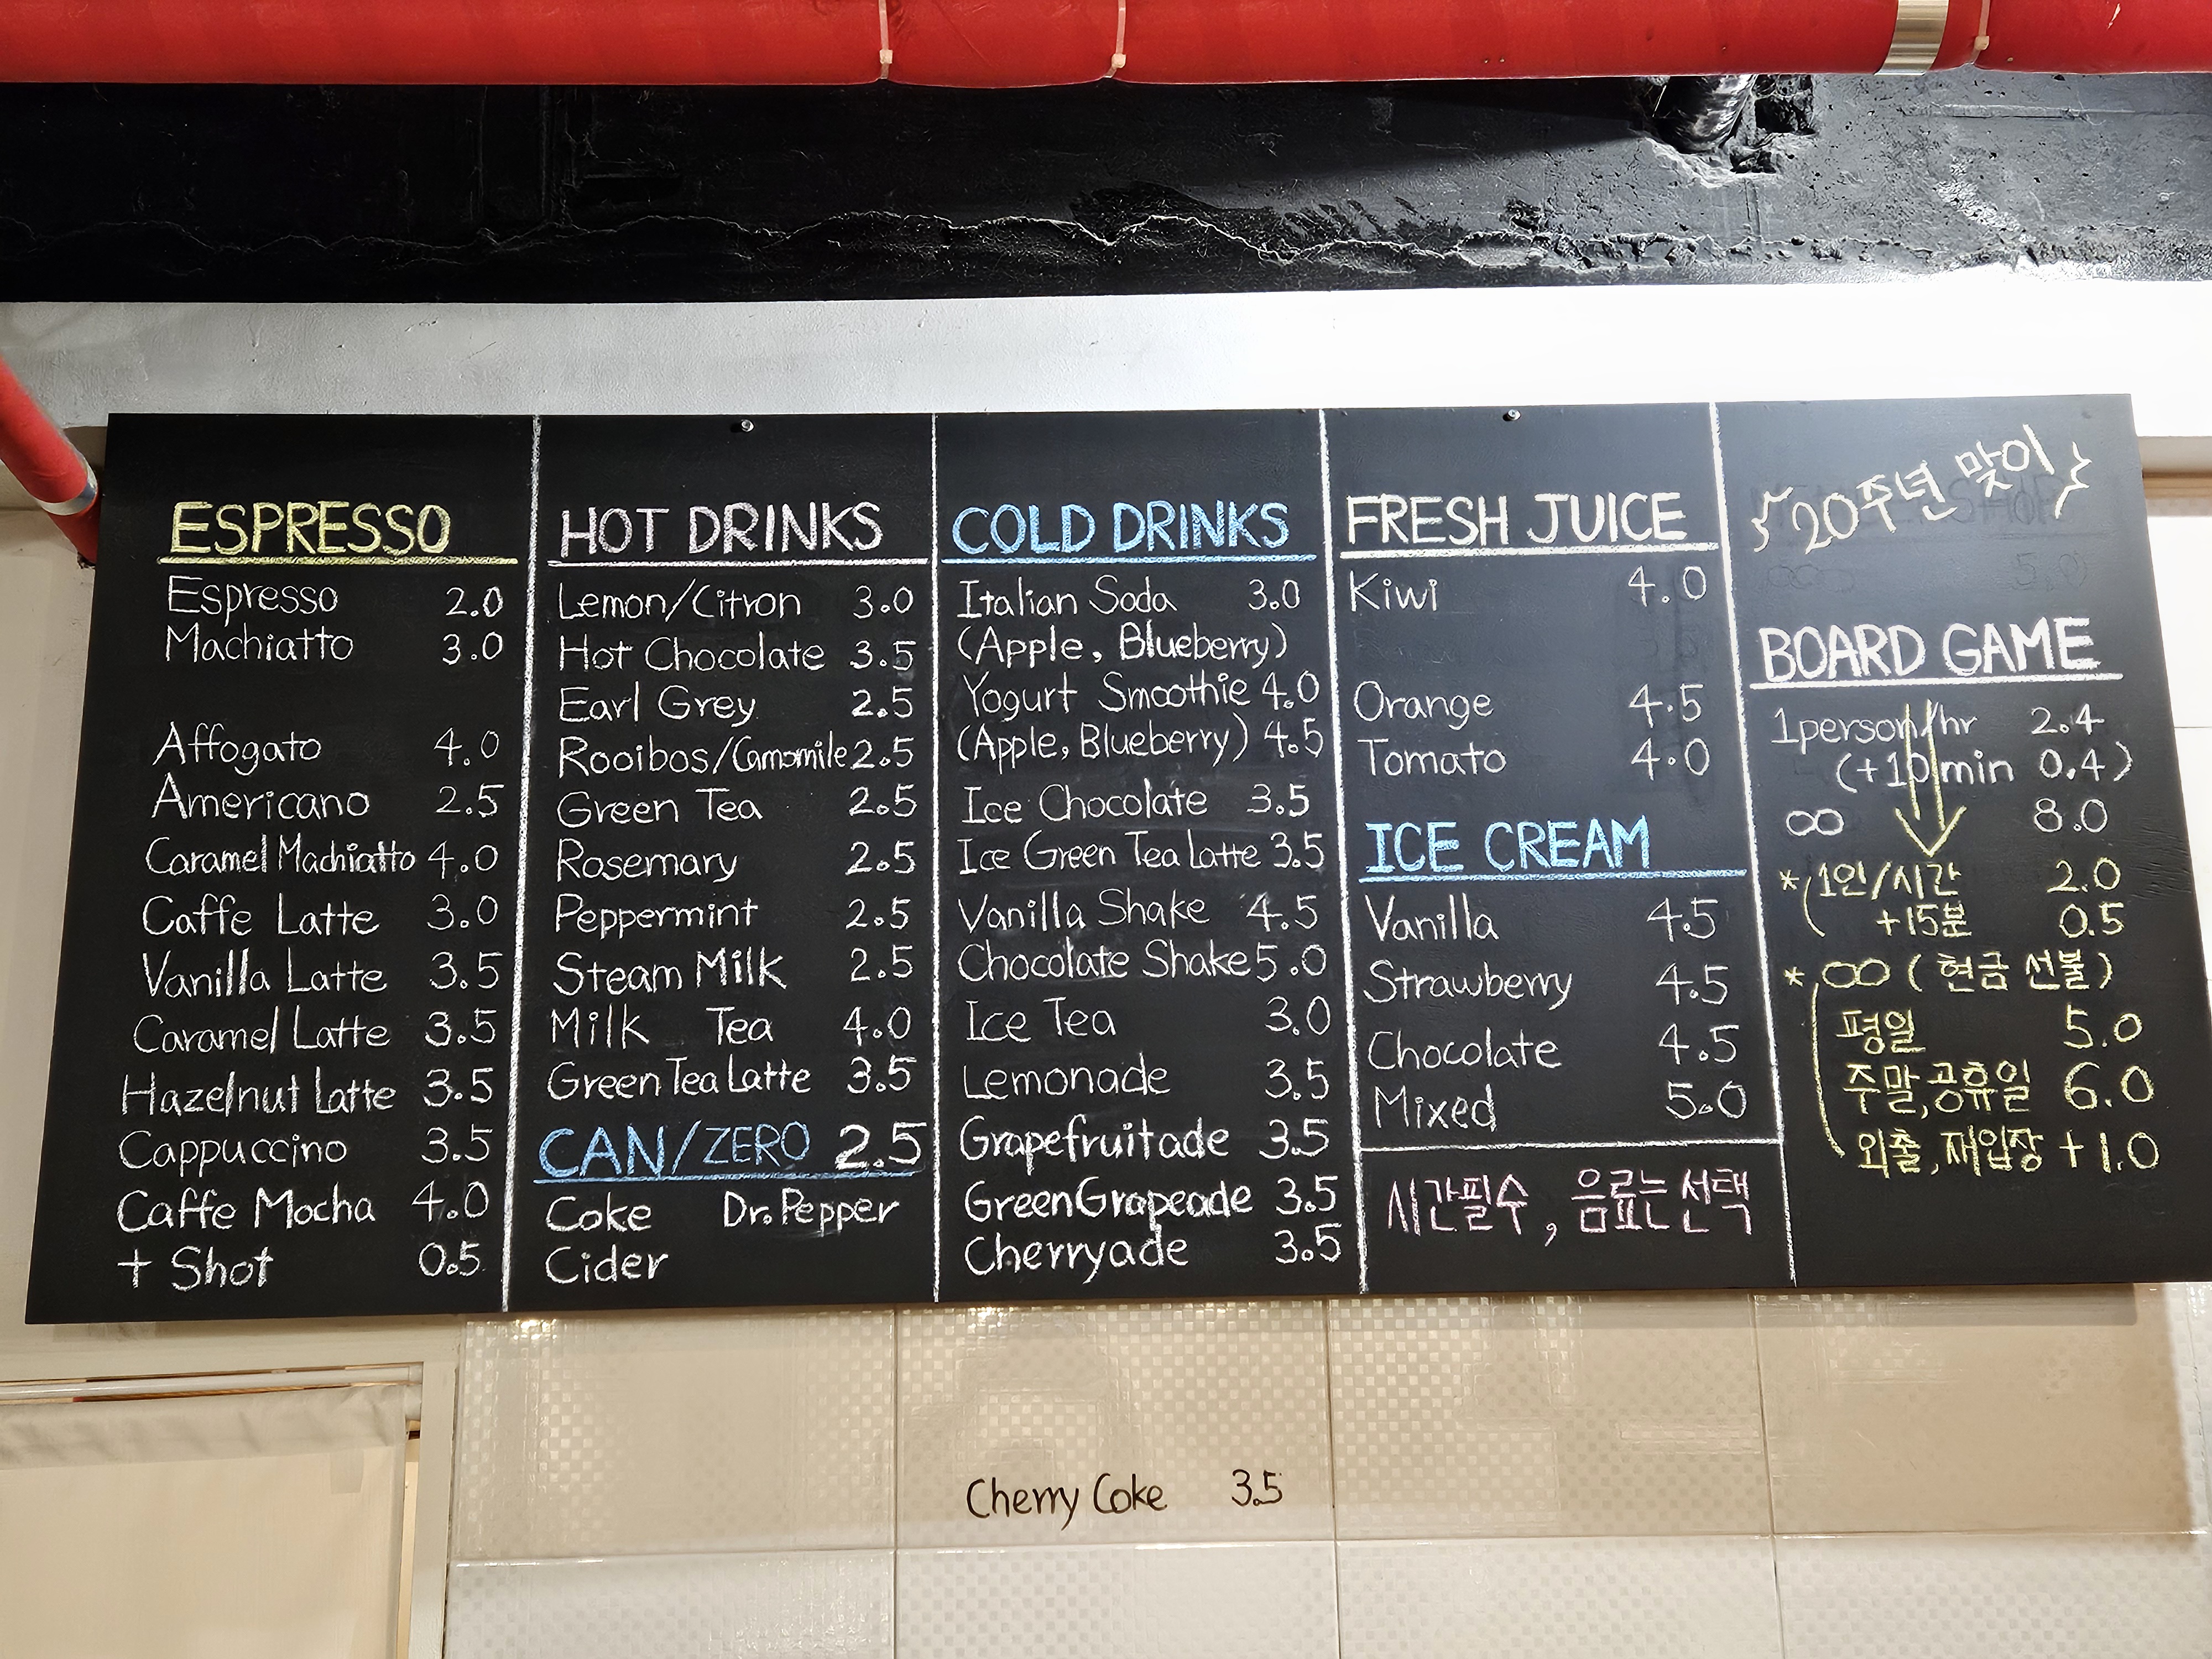 ESPRESSO
Espresso 2.0
Machiatto 3.0
Affogato 4.0
Americano 2.5
Caramel Machiatto 4.0
Caffe Latte 3.0
Vanilla Latte 3.5
Caramel Latte 3.5
Hazelnut Latte 3.5
Cappuccino 3.5
Caffe Mocha 4.0
+ Shot 0.5
HOT DRINKS
Lemon/Citron 3.0
Hot Chocolate 3.5
Earl Grey 2.5
Rooibos/Camomile 2.5
Green Tea 2.5
Rosemary 2.5
Peppermint 2.5
Steam Milk 2.5
Milk Tea 4.0
Green Tea Latte 3.5
CAN/ZERO 2.5
Coke Dr.Pepper
Cider
COLD DRINKS
Italian Soda 3.0
(Apple, Blueberry)
Yogurt Smoothie 4.0
(Apple, Blueberry) 4.5
Ice Chocolate 3.5
Ice Green Tea Latte 3.5
Vanilla Shake 4.5
Chocolate Shake 5.0
Ice Tea 3.0
Lemonade 3.5
Grapefruitade 3.5
GreenGrapeade 3.5
Cherryade 3.5
FRESH JUICE
Kiwi 4.0
Orange 4.5
Tomato 4.0
ICE CREAM
Vanilla 4.5
Strawberry 4.5
Chocolate 4.5
Mixed 5.0
시간필수, 음료는 선택
20주년 맞이
BOARD GAME
1person/hr 2.4
(+10min 0.4)
∞ 8.0
* 1인/시간 2.0
+15분 0.5
* ∞ (현금 선불)
평일 5.0
주말,공휴일 6.0
외출,재입장 +1.0
Cherry Coke 3.5